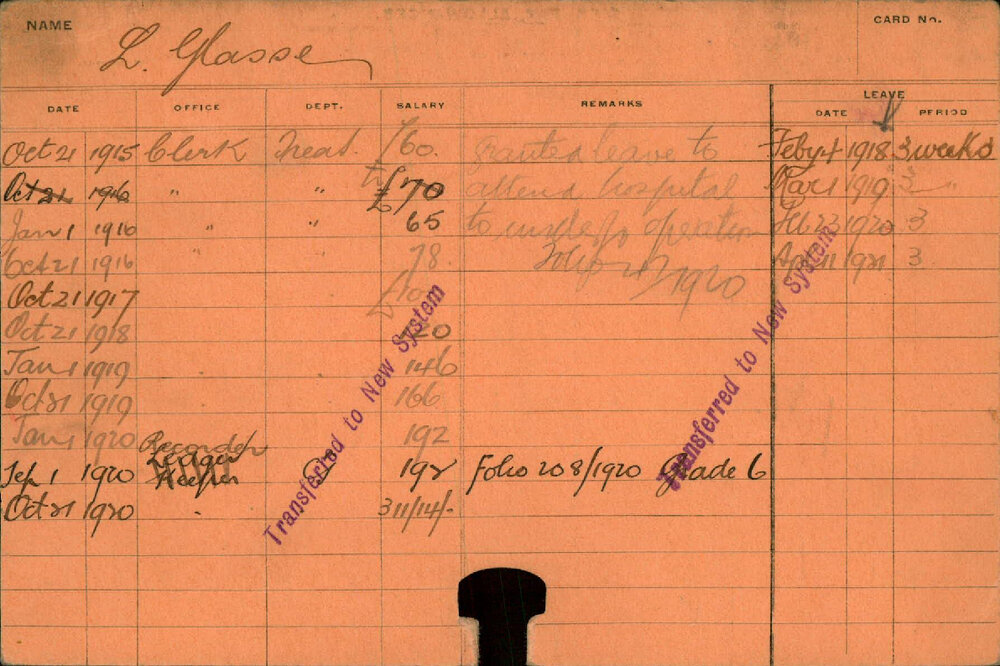 NAME L. Glasse CARD No.
DATE OFFICE DEPT. SALARY REMARKS LEAVE
DATE PERIOD
Oct 21 1915 Clerk Treas. £60. granted leave to Feby 4 1918 3 weeks
Oct 21 1916 " " £70 attend hospital Mar 1 1919 3 "
Jan 1 1916 " " 65 to undergo operation Feb 23 1920 3
Oct 21 1916 78 Folio 1920 Ap 11 1921 3
Oct 21 1917
Oct 21 1918 120
Jan 1 1919 146
Oct 21 1919 166
Jan 1 1920 192
Recorder
Ledger
Sep 1 1920 Keeper 192 Folio 208/1920 Grade 6
Oct 21 1920 " 311/14/-
Transferred to New System
Transferred to New System